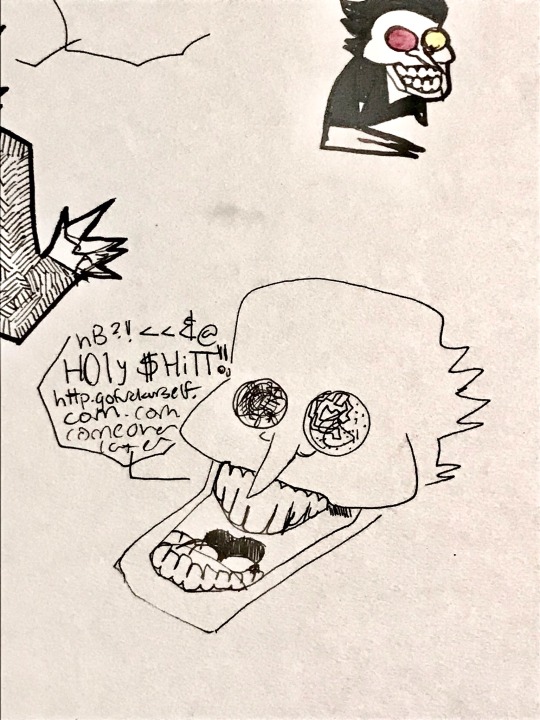 nB?! <<&@
HOly $HiTT!!
http.gofuckurself.
com.com
comeover